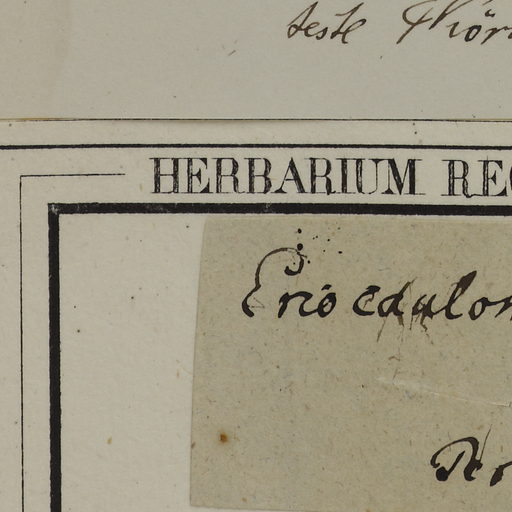 teste Kör
HERBARIUM REG
Eriocaulon